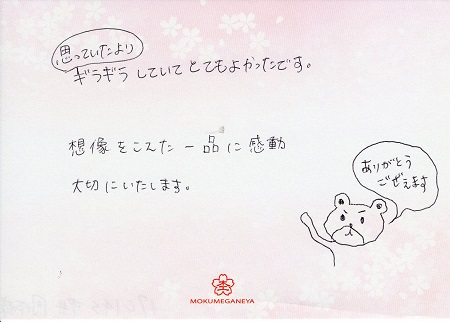 思っていたより
ギラギラしていてとてもよかったです。
想像をこえた一品に感動
大切にいたします。
ありがとう
ござえます
MOKUMEGANEYA